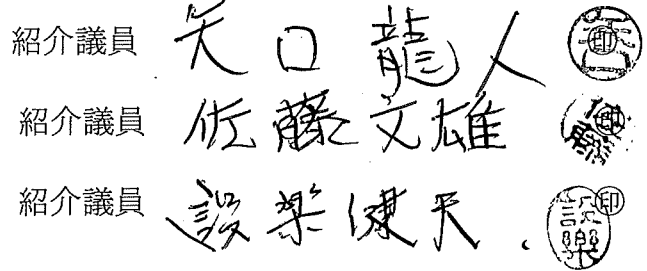 紹介議員 矢口龍人 ㊞
紹介議員 佐藤文雄 ㊞
紹介議員 設楽健夫 ㊞